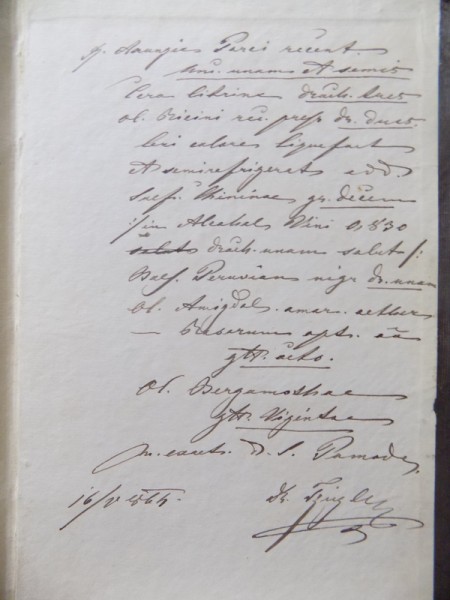 Axungiae Porci recent.
unc. unam et semis
Cera citrina drach. tres
Ol. Ricini rec. press. dr. duas
leni calore liquefact
et semirefrigerat. add.
Sulf. Chininae gr. decem
/: in Alcohol Vini 0,830
drach. unam solut :/
Bals. Peruvian nigr dr. unam
Ol. Amigdal. amar. aether
— Rosarum opt. aa
gtt. octo.
Ol. Bergamothae
gtt. Viginta
m. exact. D. S. Pomade
16/V 864. Dr.